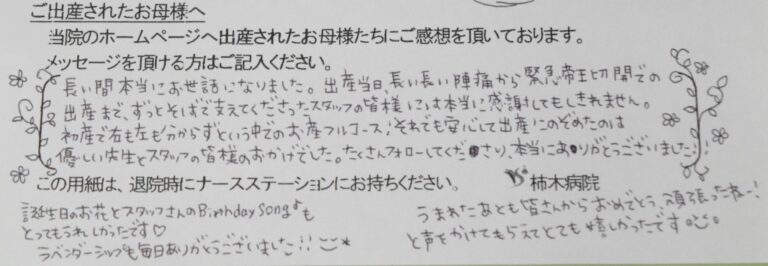 ご出産されたお母様へ
当院のホームページへ出産されたお母様たちにご感想を頂いております。
メッセージを頂ける方はご記入ください。
長い間本当にお世話になりました。出産当日、長い長い陣痛から緊急帝王切開での
出産まで、ずっとそばで支えてくださったスタッフの皆様には本当に感謝してもしきれません。
初産で右も左も分からずという中でのお産フルコース!それでも安心して出産にのぞめたのは
優しい先生とスタッフの皆様のおかげでした。たくさんフォローしてくださり、本当にありがとうございました!!
この用紙は、退院時にナースステーションにお持ちください。 柿木病院
誕生日のお花とスタッフさんのBirthday Song♪も
とってもうれしかったです♡
ラベンダーシップも毎日ありがとうございました!!
うまれたあとも皆さんからおめでとう、頑張ったねー!
と声をかけてもらえてとても嬉しかったです。